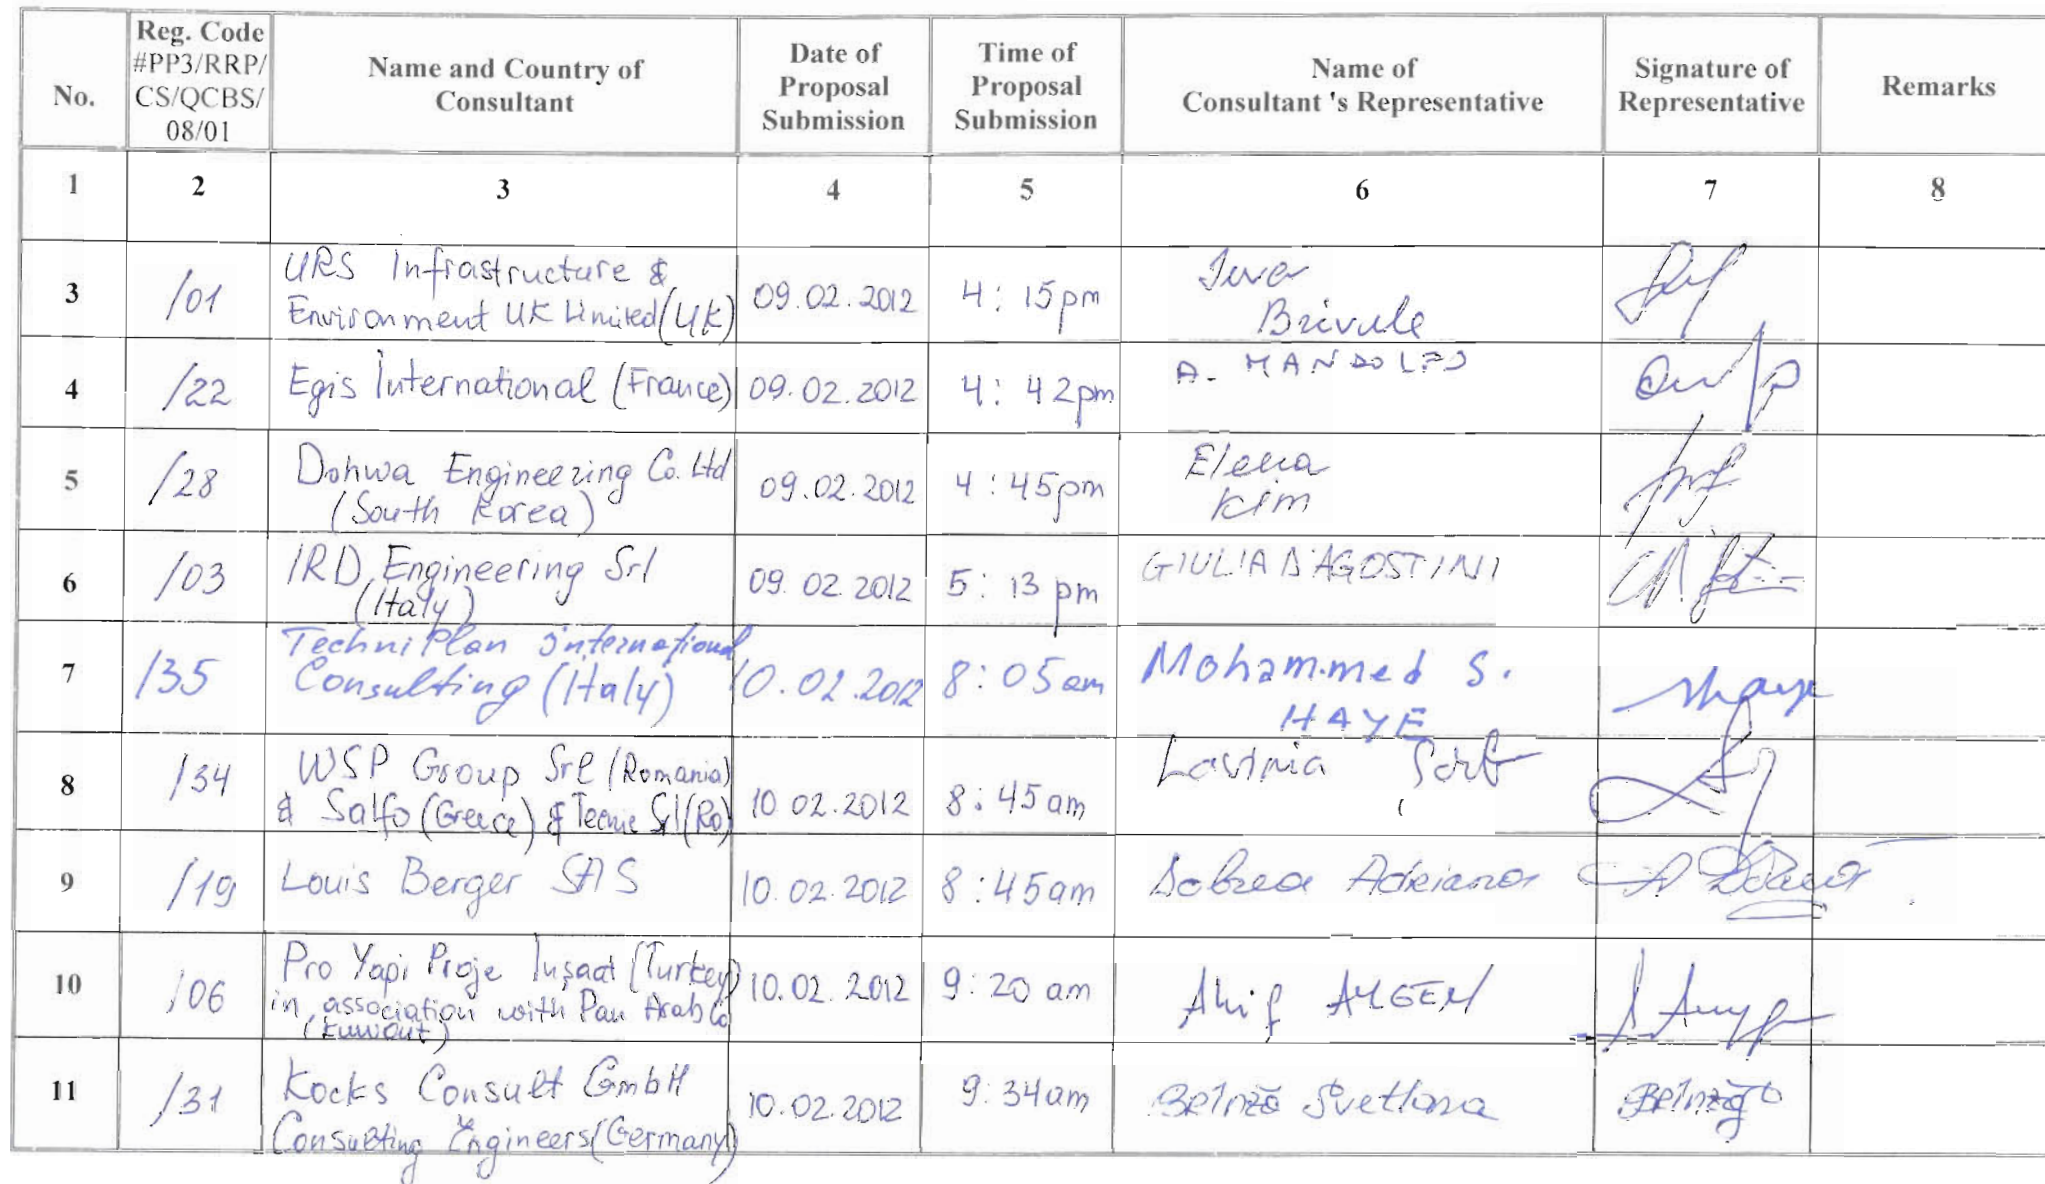 No.
Reg. Code
#PP3/RRP/
CS/QCBS/
08/01
Name and Country of
Consultant
Date of
Proposal
Submission
Time of
Proposal
Submission
Name of
Consultant 's Representative
Signature of
Representative
Remarks
1 2 3 4 5 6 7 8
3 /01
URS Infrastructure &
Environment UK Limited (UK)
09.02.2012 4:15pm
Brivule
4 /22 Egis International (France) 09.02.2012 4:42pm A. MANDOLFO
5 /28
Dohwa Engineering Co. Ltd
(South Korea)
09.02.2012 4:45pm
Elena
Kim
6 /03
IRD Engineering Srl
(Italy)
09.02.2012 5:13 pm GIULIA D'AGOSTINI
7 /35
TechniPlan International
Consulting (Italy)
10.02.2012 8:05am
Mohammed S.
HAYE
8 /34
WSP Group Srl (Romania)
& Salfo (Greece) & Tecnic Srl (Ro)
10.02.2012 8:45am Lavinia
9 /19 Louis Berger SAS 10.02.2012 8:45am Dobrea Adriana
10 /06
Pro Yapi Proje Inşaat (Turkey)
in association with Pan Arab Co
(Kuwait)
10.02.2012 9:20 am Akif
11 /31
Kocks Consult GmbH
Consulting Engineers (Germany)
10.02.2012 9:34am Brînză Svetlana Brînză